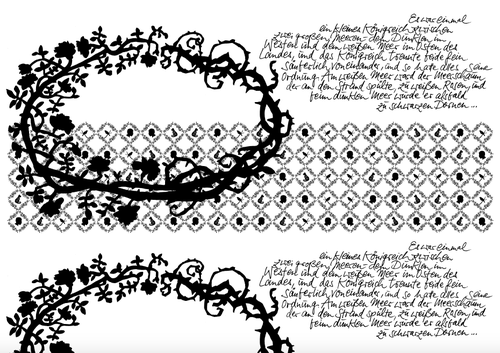 Es war einmal
ein kleines Königreich zwischen
zwei großen Meeren: dem Dunklen im
Westen und dem weißen Meer im Osten des
Landes, und das Königreich trennte beide fein
säuberlich voneinander, und so hatte alles seine
Ordnung. Am weißen Meer ward der Meerschaum
der an den Strand spülte, zu weißen Rosen, und
beim dunklen Meer wurde er alsbald
zu schwarzen Dornen ...
Es war einmal
ein kleines Königreich zwischen
zwei großen Meeren: dem Dunklen im
Westen und dem weißen Meer im Osten des
Landes, und das Königreich trennte beide fein
säuberlich voneinander, und so hatte alles seine
Ordnung. Am weißen Meer ward der Meerschaum
der an den Strand spülte, zu weißen Rosen, und
beim dunklen Meer wurde er alsbald
zu schwarzen Dornen ...